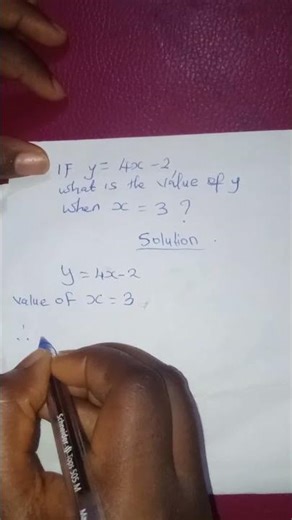 IF y = 4x - 2
what is the value of y
when x = 3 ?
Solution.
y = 4x - 2
value of x = 3,
∴
Schneider Tops 505 M
Ma